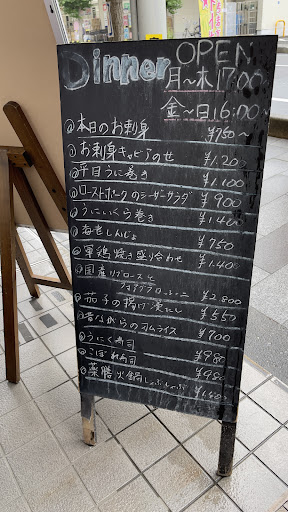 Dinner
OPEN
月~木17:00
金~日16:00
本日のお刺身 ¥750~
お刺身キャビアのせ ¥1.20
平目うに巻き ¥1.100
ローストポークのシーザーサラダ ¥900
うにいくら巻き ¥1.40
海老しんじょ ¥750
軍鶏焼き盛り合わせ ¥1.40
国産リブロースと
フォアグラロッシーニ ¥2.800
茄子の揚げ浸し ¥550
昔ながらのオムライス ¥700
うにく寿司 ¥980
こぼれ寿司 ¥980
薬膳火鍋しゃぶしゃぶ